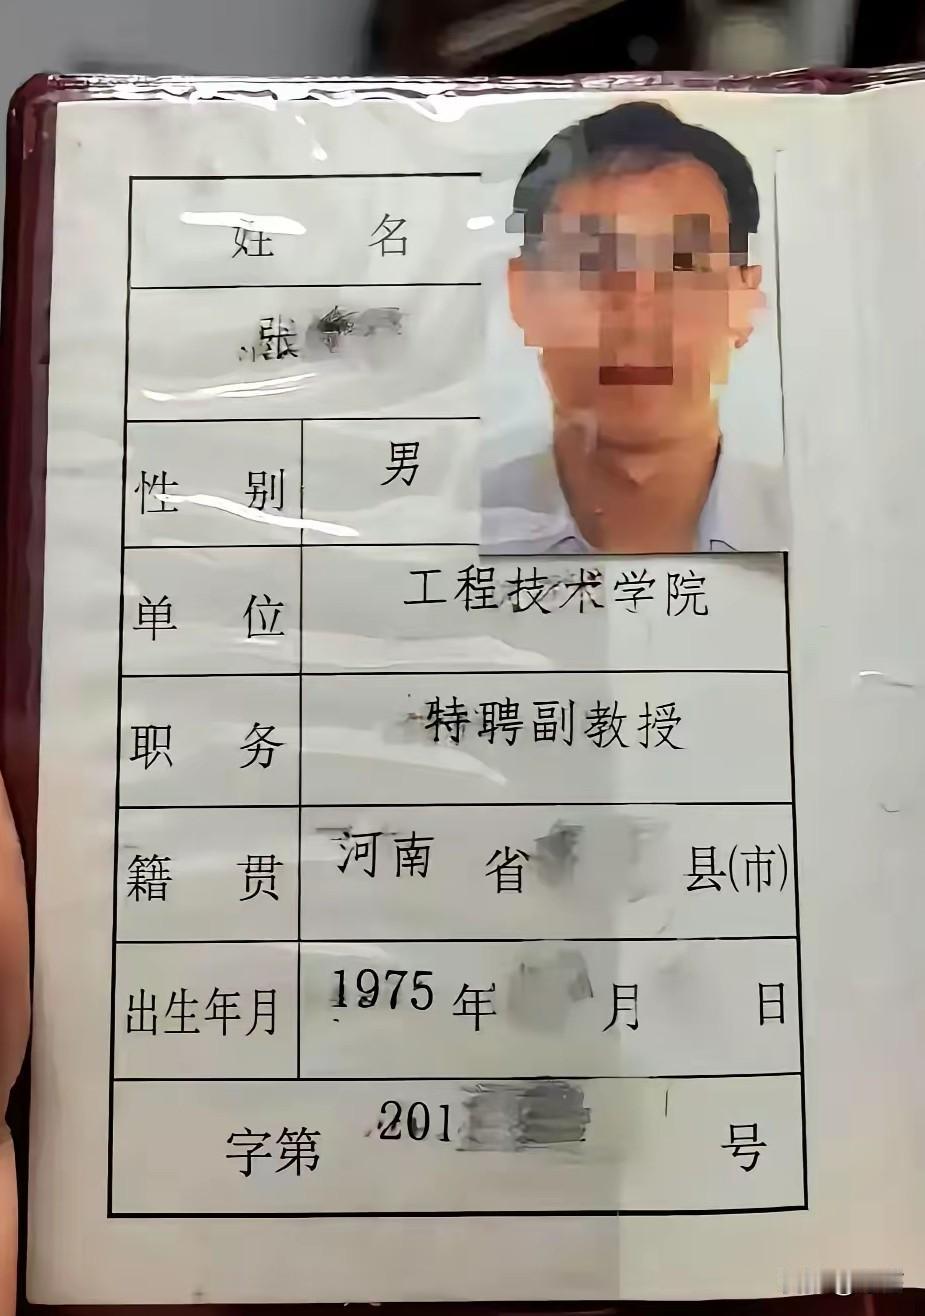 姓 名
张
性 别 男
单 位 工程技术学院
职 务 特聘副教授
籍 贯 河南 省 县(市)
出生年月 1975 年 月 日
字第 201 号